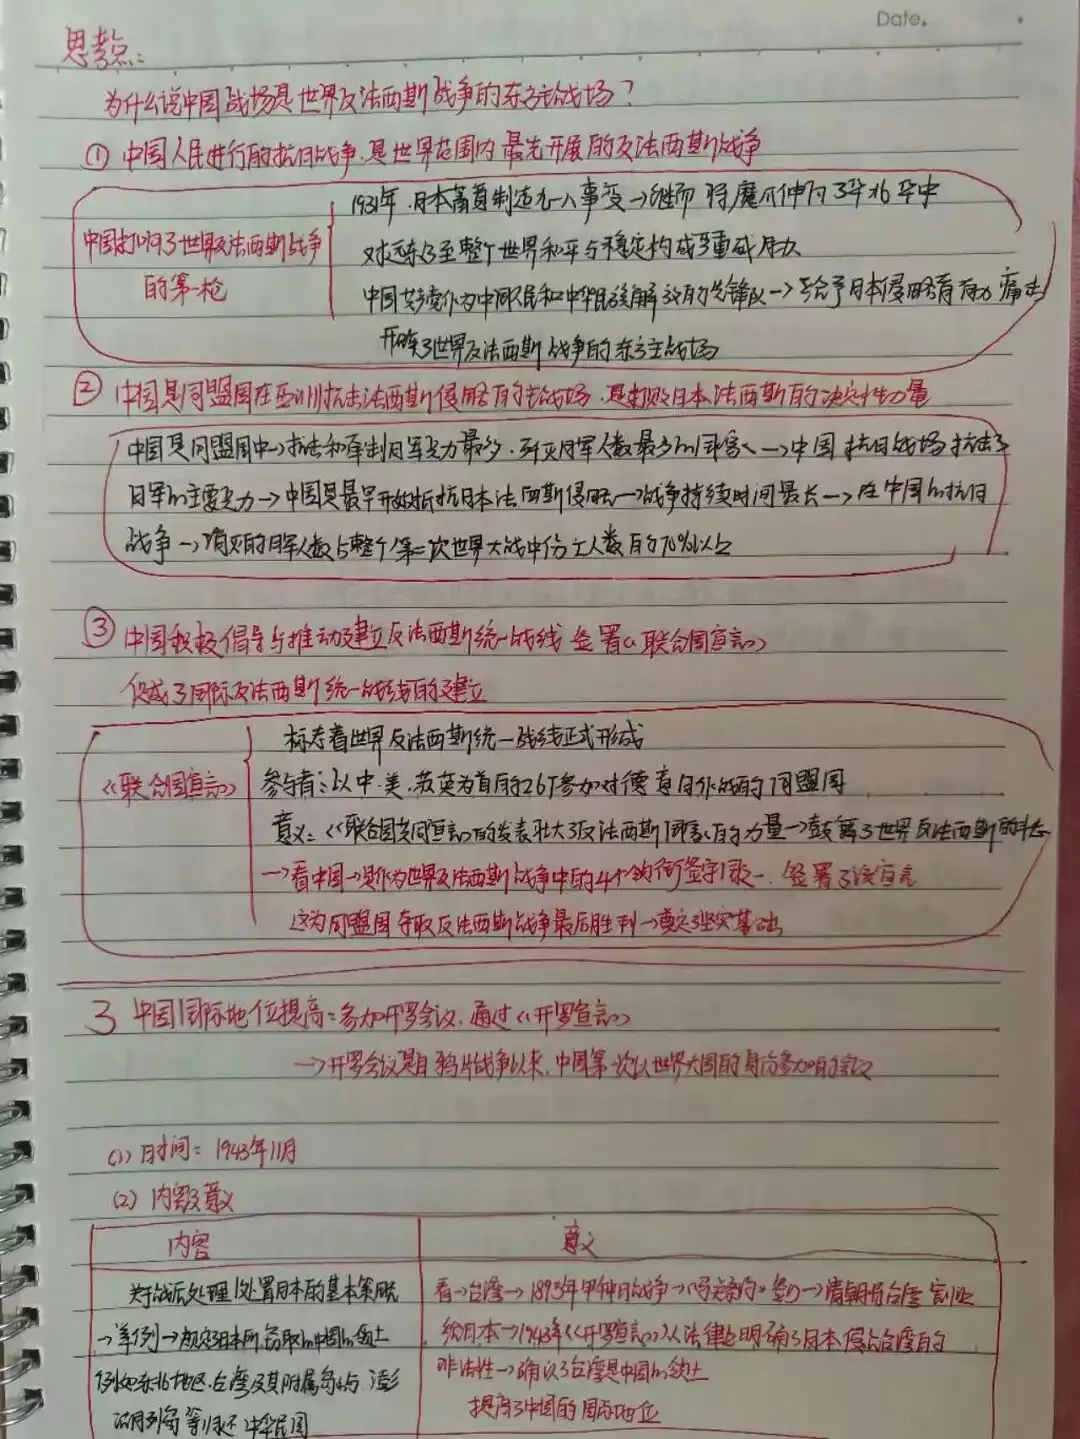 Date.
思考点:
为什么说中国战场是世界反法西斯战争的东方主战场?
① 中国人民进行的抗日战争,是世界范围内最先开展的反法西斯战争
1931年,日本蓄意制造九一八事变→继而将魔爪伸向了华北华中
中国打响了世界反法西斯战争
对远东乃至整个世界和平与稳定构成严重威胁
的第一枪
中国共产党作为中国人民和中华民族解放的先锋队→给予日本侵略者有力痛击
开辟了世界反法西斯战争的东方主战场
② 中国是同盟国在亚洲抗击法西斯侵略者的主战场,是打败日本法西斯的决定性力量
中国是同盟国中→抗击和牵制日军兵力最多,歼灭日军人数最多的国家→中国抗日战场抗击了
日军的主要兵力→中国是最早开始抵抗日本法西斯侵略→战争持续时间最长→在中国的抗日
战争→消灭的日军人数占整个第二次世界大战中伤亡人数的70%以上
③ 中国积极倡导与推动建立反法西斯统一战线 签署《联合国宣言》
促成了国际反法西斯统一战线的建立
标志着世界反法西斯统一战线正式形成
《联合国宣言》
参与者:以中、美、苏英为首的26个参加对德意日作战的同盟国
意义:《联合国共同宣言》的发表壮大了反法西斯国家的力量→鼓舞了世界反法西斯的斗志
→看中国→是作为世界反法西斯战争中的4个领衔签字国之一,签署了该宣言
这为同盟国夺取反法西斯战争最后胜利→奠定了坚实基础
3 中国国际地位提高:参加开罗会议,通过《开罗宣言》
→开罗会议是自鸦片战争以来,中国第一次以世界大国的身份参加的会议
(1) 时间:1943年11月
(2) 内容及意义
内容 意义
关于战后处理处置日本的基本策略
→举例→规定日本所窃取的中国的领土
例如东北地区、台湾及其附属岛屿与澎
湖列岛等归还中华民国
看→台湾→1895年甲午中日战争→《马关条约》签订→清朝将台湾割让
给日本→1943年《开罗宣言》从法律上明确了日本侵占台湾的
非法性→确认了台湾是中国的领土
提高了中国的国际地位